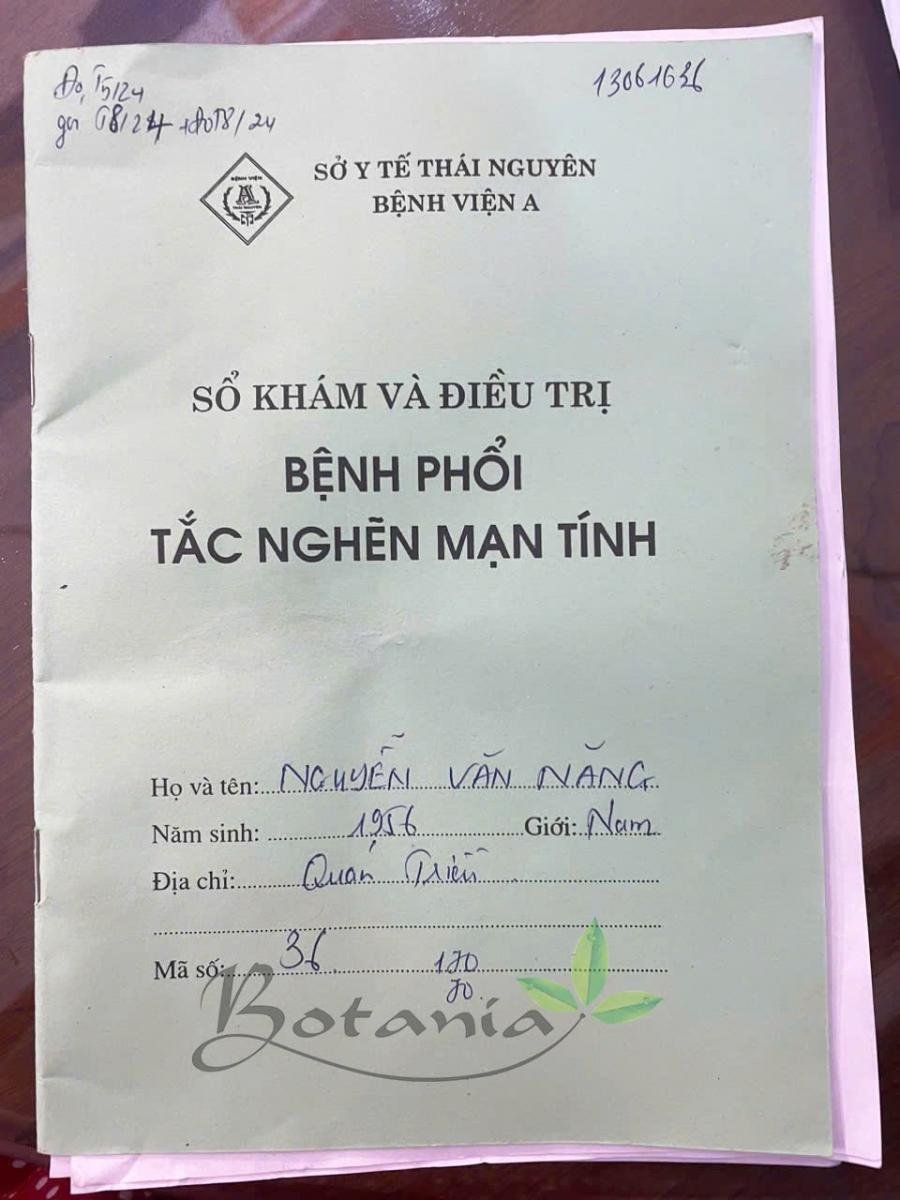 Đo, T5/24
gia T8/24 + Đo T8/24
13061636
BỆNH VIỆN
A
THÁI NGUYÊN
SỞ Y TẾ THÁI NGUYÊN
BỆNH VIỆN A
SỔ KHÁM VÀ ĐIỀU TRỊ
BỆNH PHỔI
TẮC NGHẼN MẠN TÍNH
Họ và tên: NGUYỄN VĂN NĂNG
Năm sinh: 1956 Giới: Nam
Địa chỉ: Quán Triều
Mã số: 36 170
70
Botania